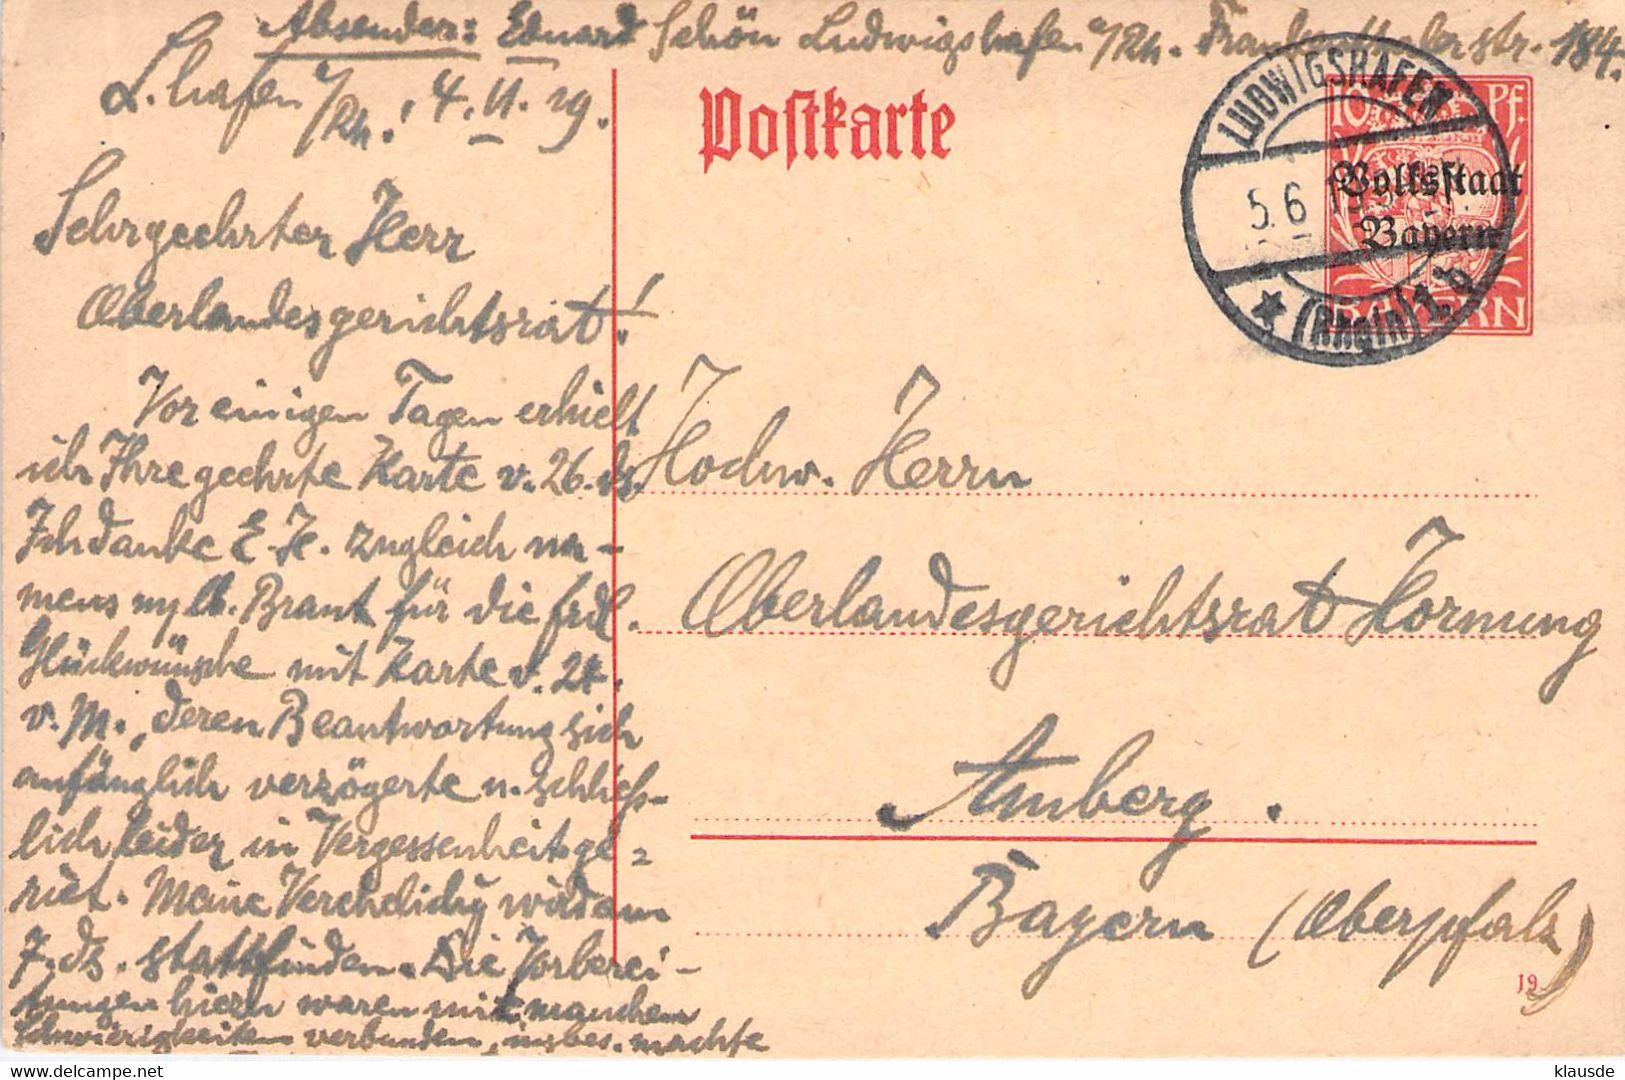 Absender: Eduard Schön Ludwigshafen a/Rh. Frankenthalerstr. 184.
L.hafen a/Rh., 4. II. 19.
Postkarte
LUDWIGSHAFEN
5.6
(Rhein) 1.b
10 Pf.
Volksstaat
Bayern
BAYERN
Sehrgeehrter Herr
Oberlandesgerichtsrat!
Vor einigen Tagen erhielt
ich Ihre geehrte Karte v. 26. ds.
Ich danke E. H. zugleich na-
mens m/lb. Braut für die frdl.
Glückwünsche mit Karte v. 24.
v. M., deren Beantwortung sich
anfänglich verzögerte u. schließ-
lich leider in Vergessenheit ge-
riet. Meine Verehelichg wird am
7. ds. stattfinden. Die Vorberei-
tungen hiezu waren mit manchen
Schwierigkeiten verbunden, insbes. machte
Hochw. Herrn
Oberlandesgerichtsrat Hornung
Amberg.
Bayern (Oberpfalz)
19
klausde